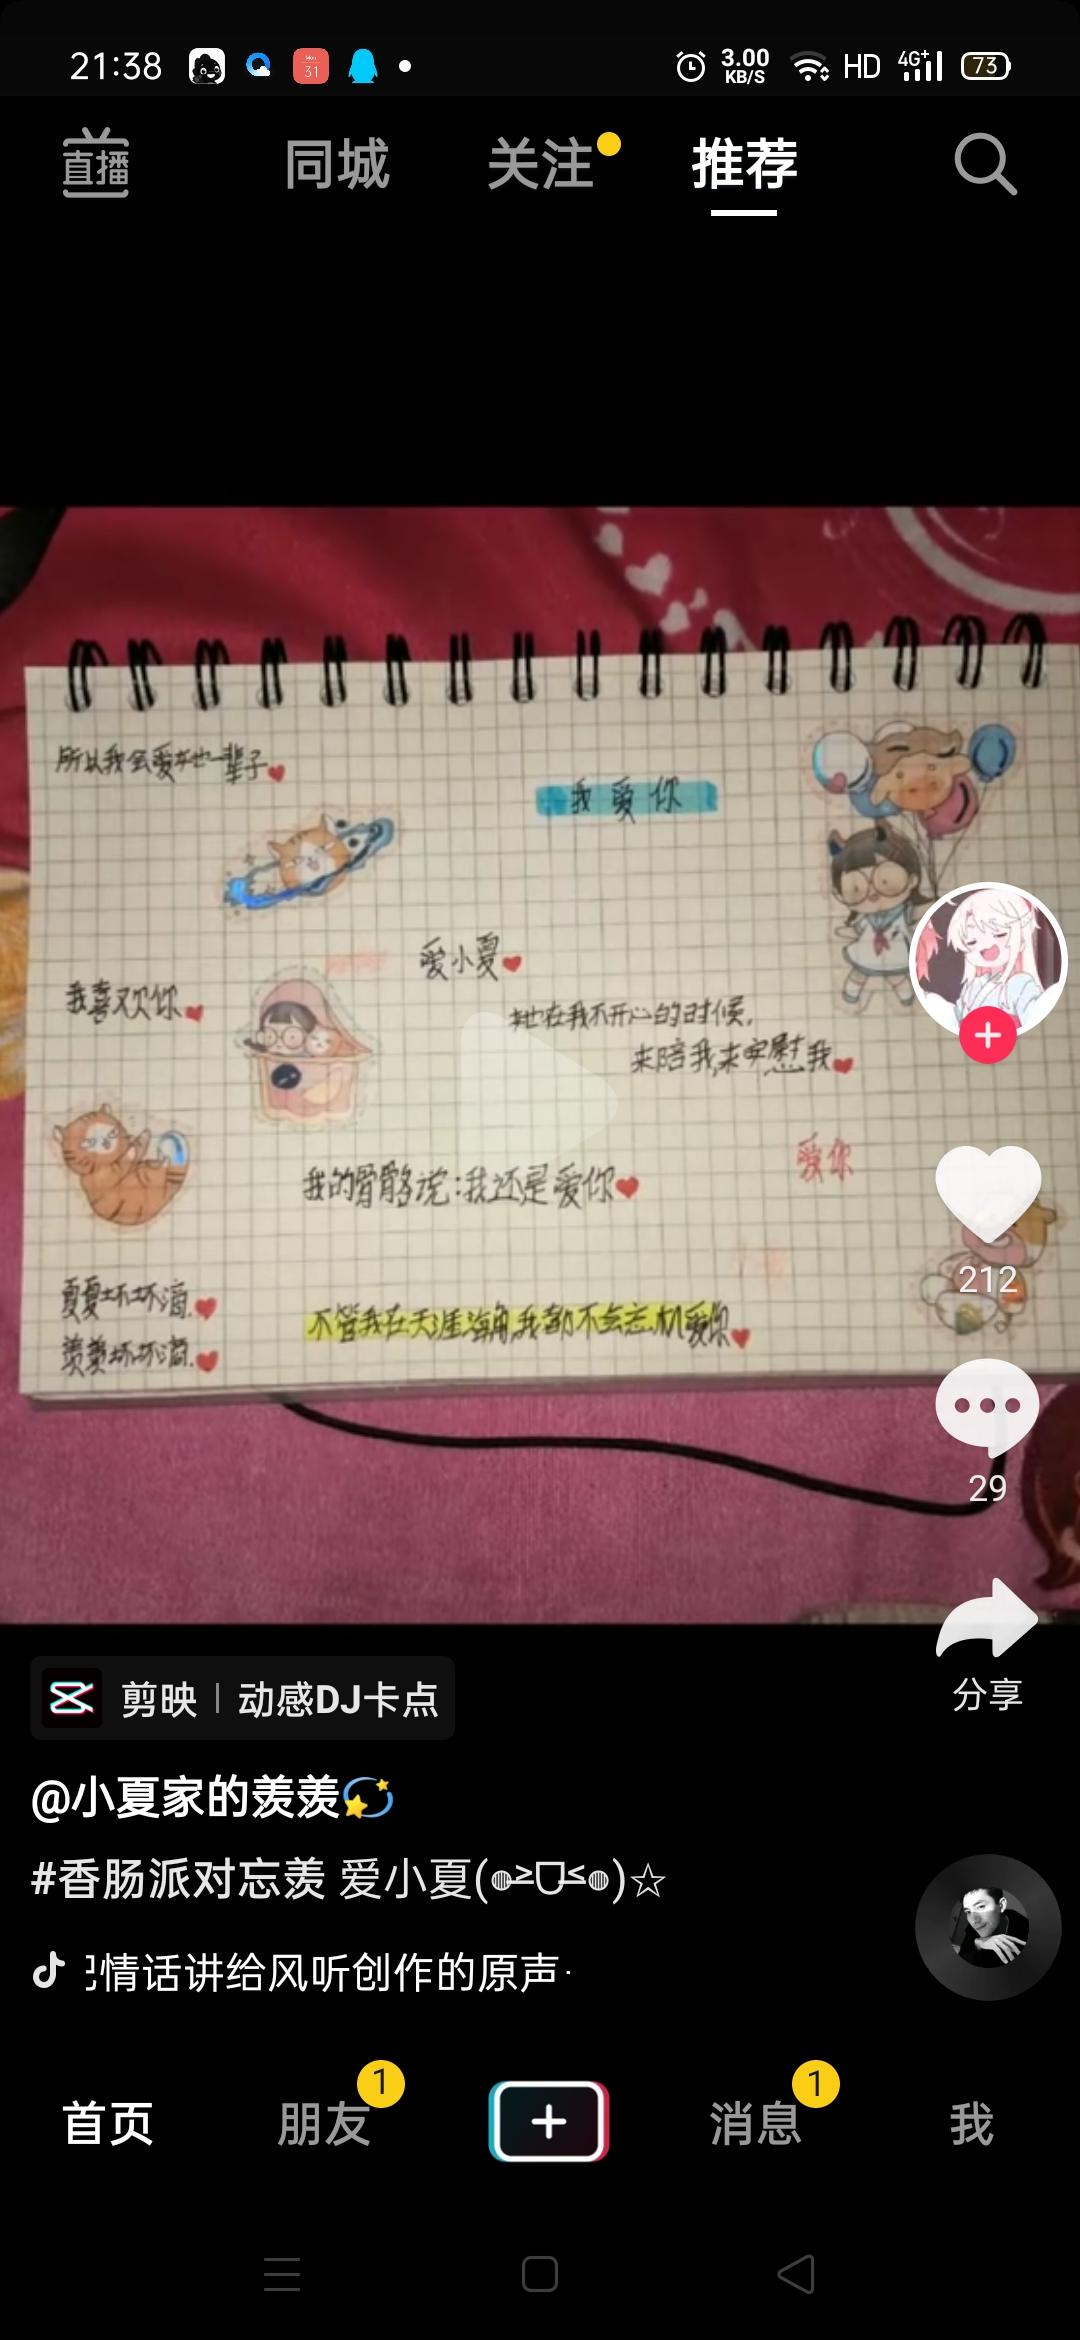 21:38
31
3.00
KB/S
HD
4G+
73
直播
同城
关注
推荐
所以我会爱她一辈子
我爱你
爱小夏
我喜欢你
她在我不开心的时候,
来陪我,来安慰我
爱你
我的骨骼说:我还是爱你
夏夏坏坏滴.
羡羡坏坏滴.
不管我在天涯海角,我都不会忘机爱你
212
29
分享
剪映 | 动感DJ卡点
@小夏家的羡羡💫
#香肠派对忘羡 爱小夏(๑≥▽≤๑)☆
情话讲给风听创作的原声
首页
朋友
1
消息
1
我